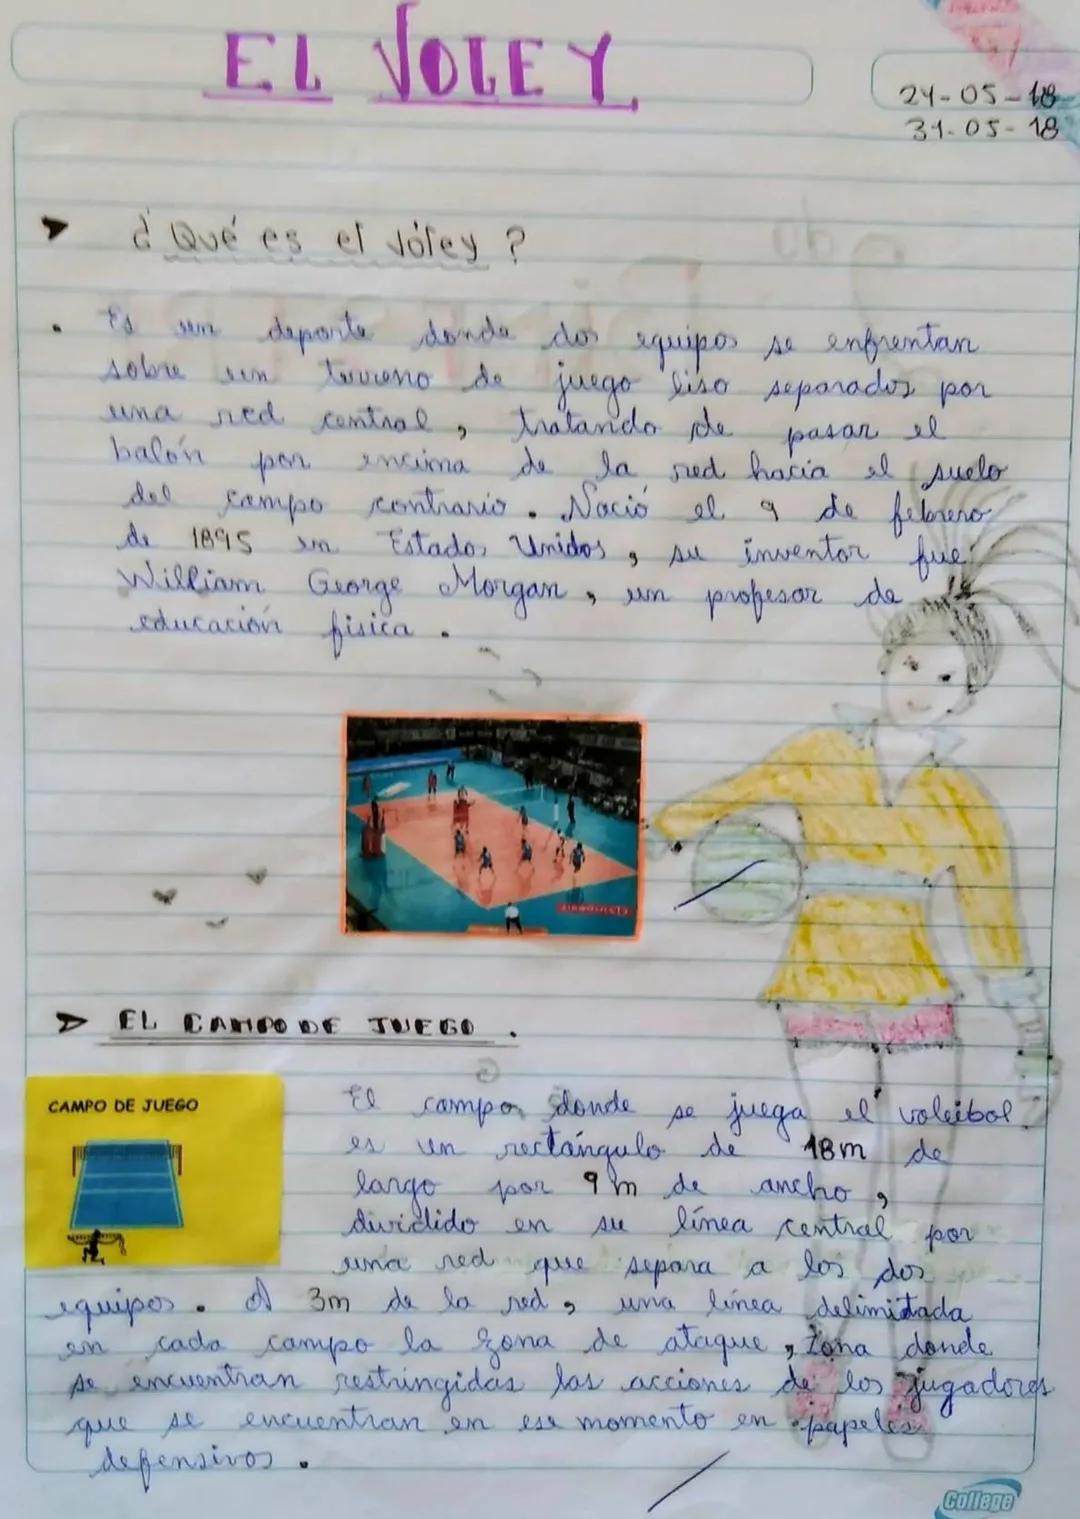 EL VOLEY
24-05-18
31-05-18
¿Qué es el vóley?
Es un deporte donde dos equipos se enfrentan
sobre un terreno de juego liso separados por
una red central, tratando de pasar el
balón por encima de la red hacia el suelo
del campo contrario. Nació el 9 de febrero
de 1895 en Estados Unidos, su inventor fue
William George Morgan, un profesor de
educación física.
EL CAMPO DE JUEGO.
CAMPO DE JUEGO
El campo donde se juega el voleibol
es un rectángulo de 18m de
largo por 9m de ancho,
dividido en su línea central por
una red que separa a los dos
equipos. A 3m de la red, una línea delimitada
en cada campo la zona de ataque, zona donde
se encuentran restringidas las acciones de los jugadores
que se encuentran en ese momento en papeles
defensivos.
College